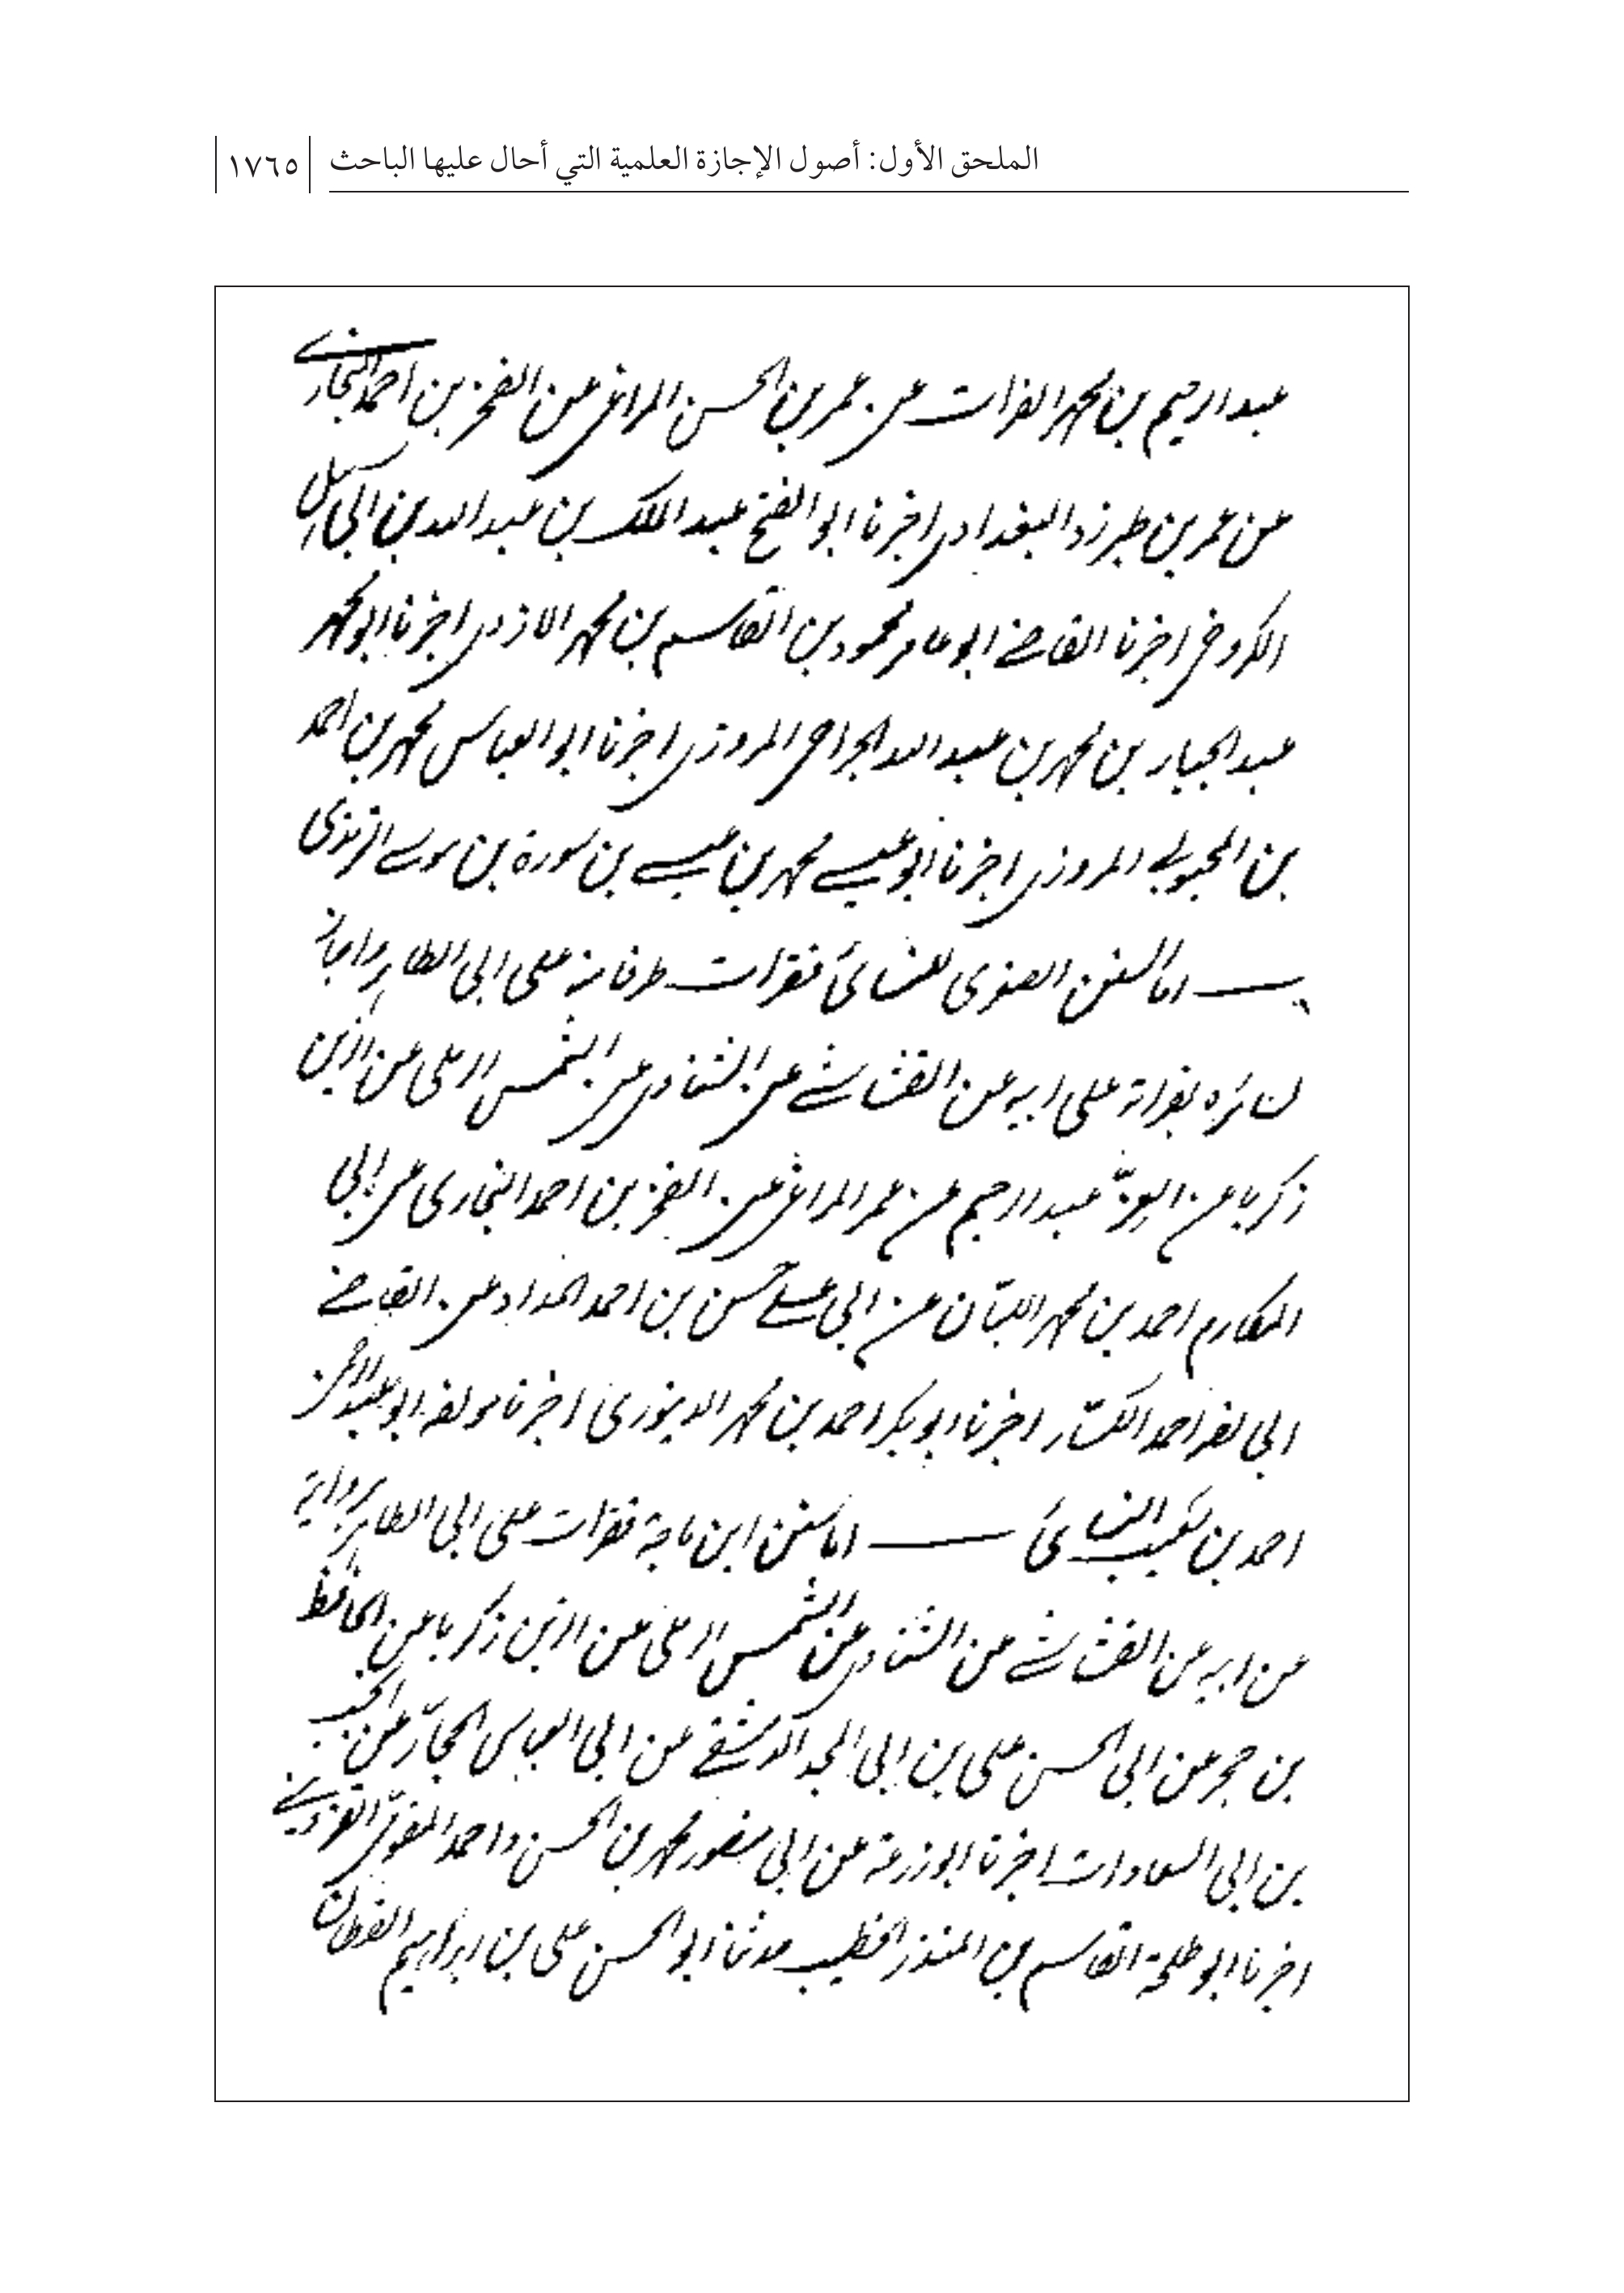 الملحق الأول: أصول الإجازة العلمية التي أحال عليها الباحث | ١٧٦٥
عبد الرحيم بن محمد الفرات عن عمر بن الحسن المراغي عن الفخر بن احمد البخاري
عن عمر بن طبرزد البغدادي اخبرنا ابو الفتح عبد الملك بن عبد الله بن ابي سهل
الكروخي اخبرنا القاضي ابو عامر محمود بن القاسم بن محمد الازدي اخبرنا ابو محمد
عبد الجبار بن محمد بن عبد الله الجراحي المروزي اخبرنا ابو العباس محمد بن احمد
بن المحبوبي المروزي اخبرنا ابو عيسى محمد بن عيسى بن سورة بن موسى الترمذي
اما السنن الصغرى للنسائي فقرات طرفا منه على ابي الطاهر واجاز
لسائره بقراته على ابيه عن القشاشي عن الشناوي عن الشمس الرملي عن الزين
زكريا عن العز عبد الرحيم عن عمر المراغي عن الفخر بن احمد البخاري عن ابي
المكارم احمد بن محمد اللبان عن ابي علي حسن بن احمد الحداد عن القاضي
ابي نصر احمد الكسار اخبرنا ابو بكر احمد بن محمد الدينوري اخبرنا مولفه ابو عبد الرحمن
احمد بن شعيب النسائي اما سنن ابن ماجة فقرات على ابي الطاهر بروايته
عن ابيه عن القشاشي عن الشناوي عن الشمس الرملي عن الزين زكريا عن الحافظ
بن حجر عن ابي الحسن علي بن ابي المجد الدمشقي عن ابي العباس الحجار عن انجب
بن ابي السعادات اخبرنا ابو زرعة عن ابي منصور محمد بن الحسن واحمد المقومي القزويني
اخبرنا ابو طلحة القاسم بن المنذر الخطيب حدثنا ابو الحسن علي بن ابراهيم القطان